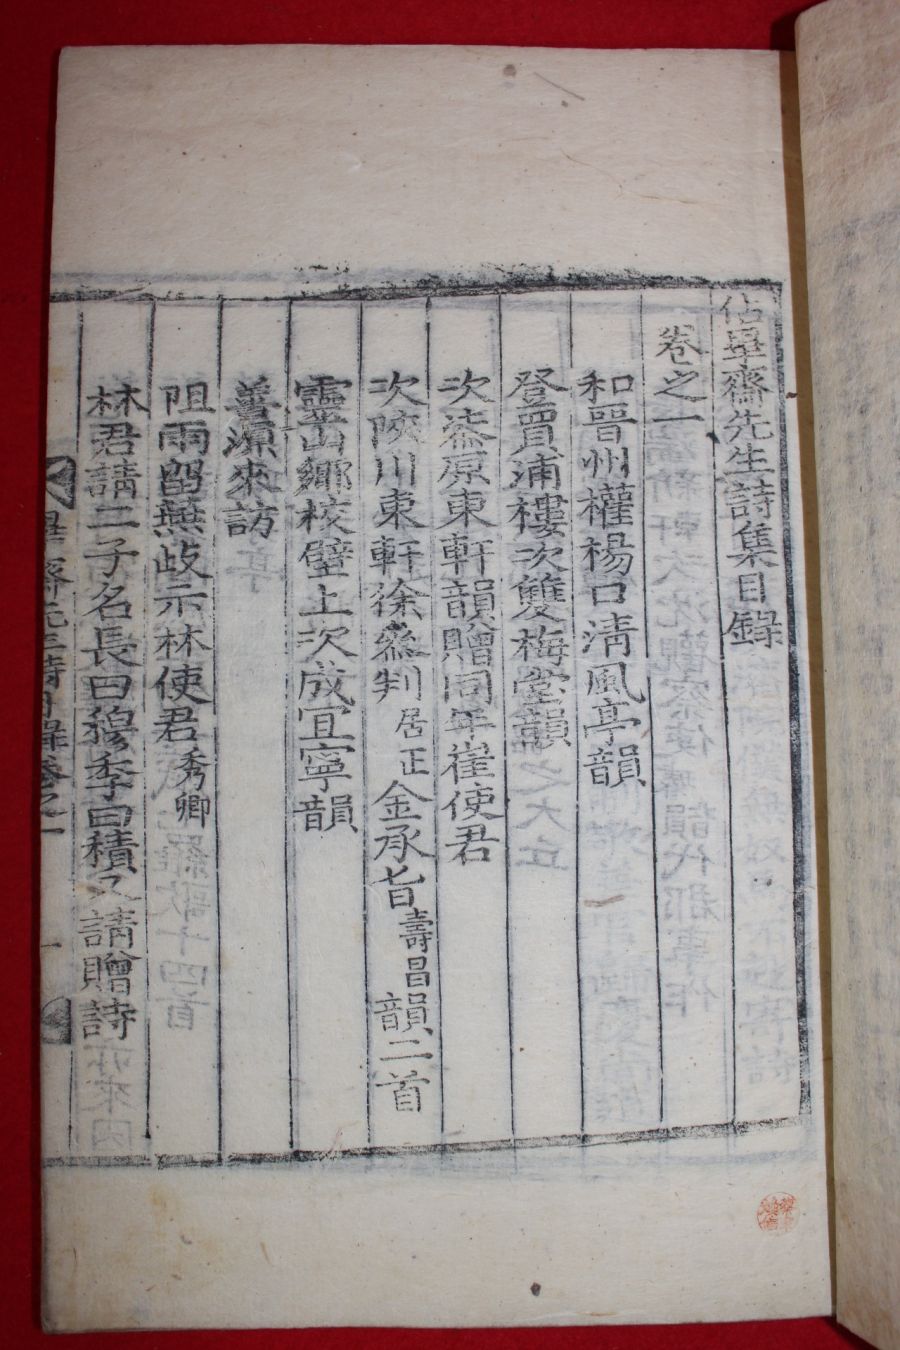 佔畢齋先生詩集目錄
卷之一
和晉州權楊口淸風亭韻
登買浦樓次雙梅堂韻
次漆原東軒韻贈同年崔使君
次陜川東軒徐叅判居正金承旨壽昌韻二首
靈山鄕校壁上次成冝寧韻
善源來訪
阻雨留無歧示林使君秀卿
林君請二子名長曰穆季曰積又請贈詩